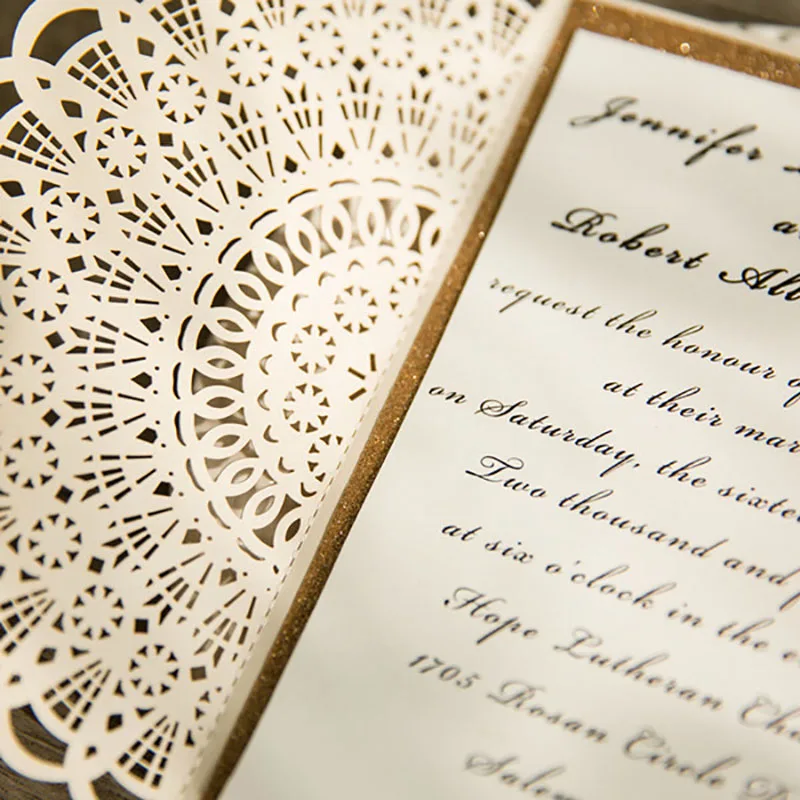 Jennifer
Robert
request the honour
at their
on Saturday, the
Two thousand and
at six o'clock in the
Hope Lutheran
1705 Rosan Circle